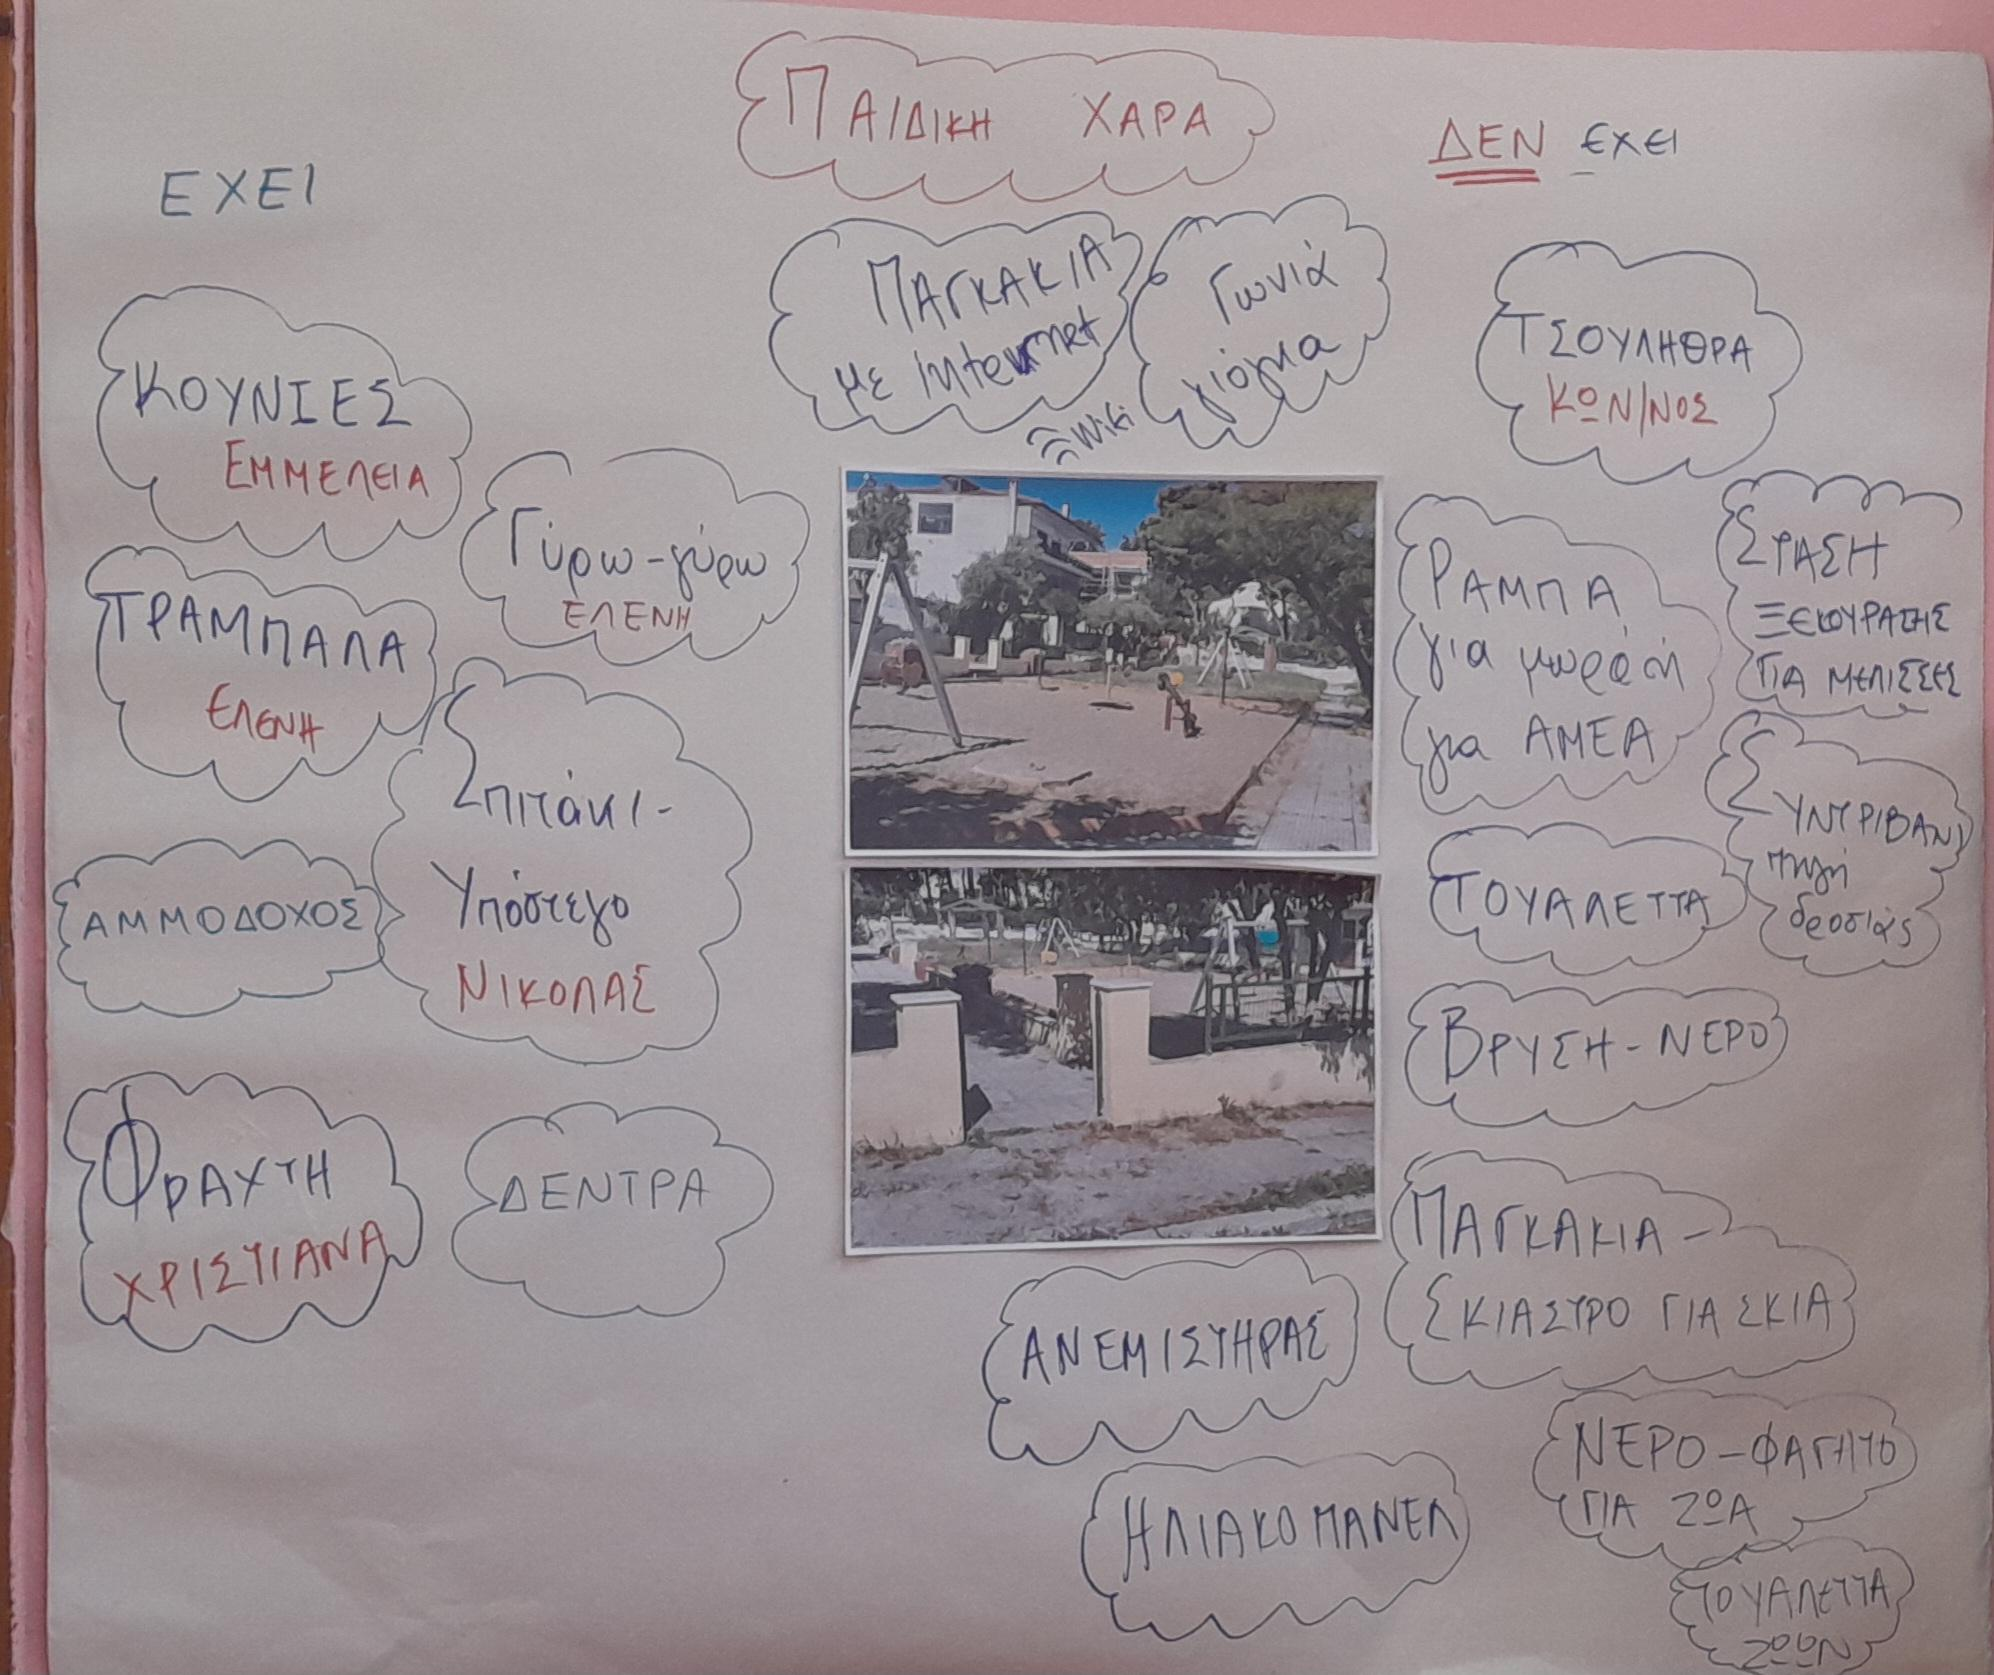 ΠΑΙΔΙΚΗ ΧΑΡΑ
ΕΧΕΙ
ΔΕΝ ΕΧΕΙ
ΚΟΥΝΙΕΣ
ΕΜΜΕΛΕΙΑ
Γύρω-γύρω
ΕΛΕΝΗ
ΤΡΑΜΠΑΛΑ
ΕΛΕΝΗ
Σπιτάκι-
Υπόστεγο
ΝΙΚΟΛΑΣ
ΑΜΜΟΔΟΧΟΣ
ΦΡΑΧΤΗ
ΧΡΙΣΤΙΑΝΑ
ΔΕΝΤΡΑ
ΠΑΓΚΑΚΙΑ
με internet
Wiki
Γωνιά
γιόγκα
ΤΣΟΥΛΗΘΡΑ
ΚΩΝ/ΝΟΣ
ΡΑΜΠΑ
για μωρά ή
για ΑΜΕΑ
ΣΤΑΣΗ
ΞΕΚΟΥΡΑΣΗΣ
ΓΙΑ ΜΕΛΙΣΣΕΣ
ΤΟΥΑΛΕΤΤΑ
ΣΥΝΤΡΙΒΑΝΙ
πηγή
δροσιάς
ΒΡΥΣΗ-ΝΕΡΟ
ΠΑΓΚΑΚΙΑ-
ΣΚΙΑΣΤΡΟ ΓΙΑ ΣΚΙΑ
ΑΝΕΜΙΣΤΗΡΑΣ
ΗΛΙΑΚΟ ΠΑΝΕΛ
ΝΕΡΟ-ΦΑΓΗΤΟ
ΓΙΑ ΖΩΑ
ΤΟΥΑΛΕΤΤΑ
ΖΩΩΝ